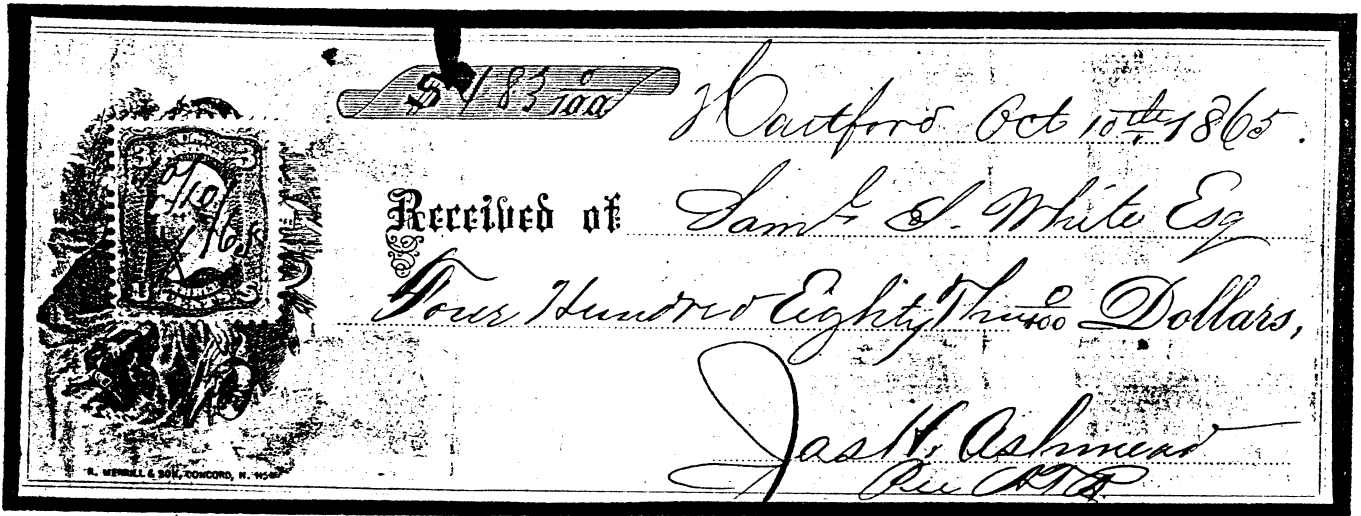 $483 0/100
Hartford Oct 10th 1865.
Received of Saml S. White Esq
Four Hundred Eighty Three 0/100 Dollars,
Jas H. Ashmead
Per
3 3
10/10/65
R. MERRILL & SON, CONCORD, N. H.